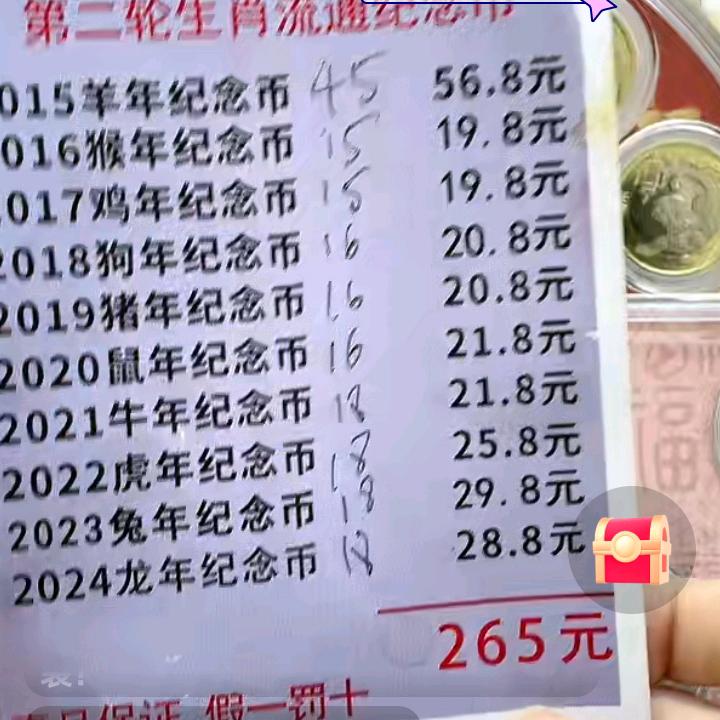 第二轮生肖流通纪念币
015羊年纪念币 45 56.8元
016猴年纪念币 15 19.8元
2017鸡年纪念币 15 19.8元
2018狗年纪念币 16 20.8元
2019猪年纪念币 16 20.8元
2020鼠年纪念币 16 21.8元
2021牛年纪念币 18 21.8元
2022虎年纪念币 18 25.8元
2023兔年纪念币 18 29.8元
2024龙年纪念币 18 28.8元
265元
保证 假一罚十
福